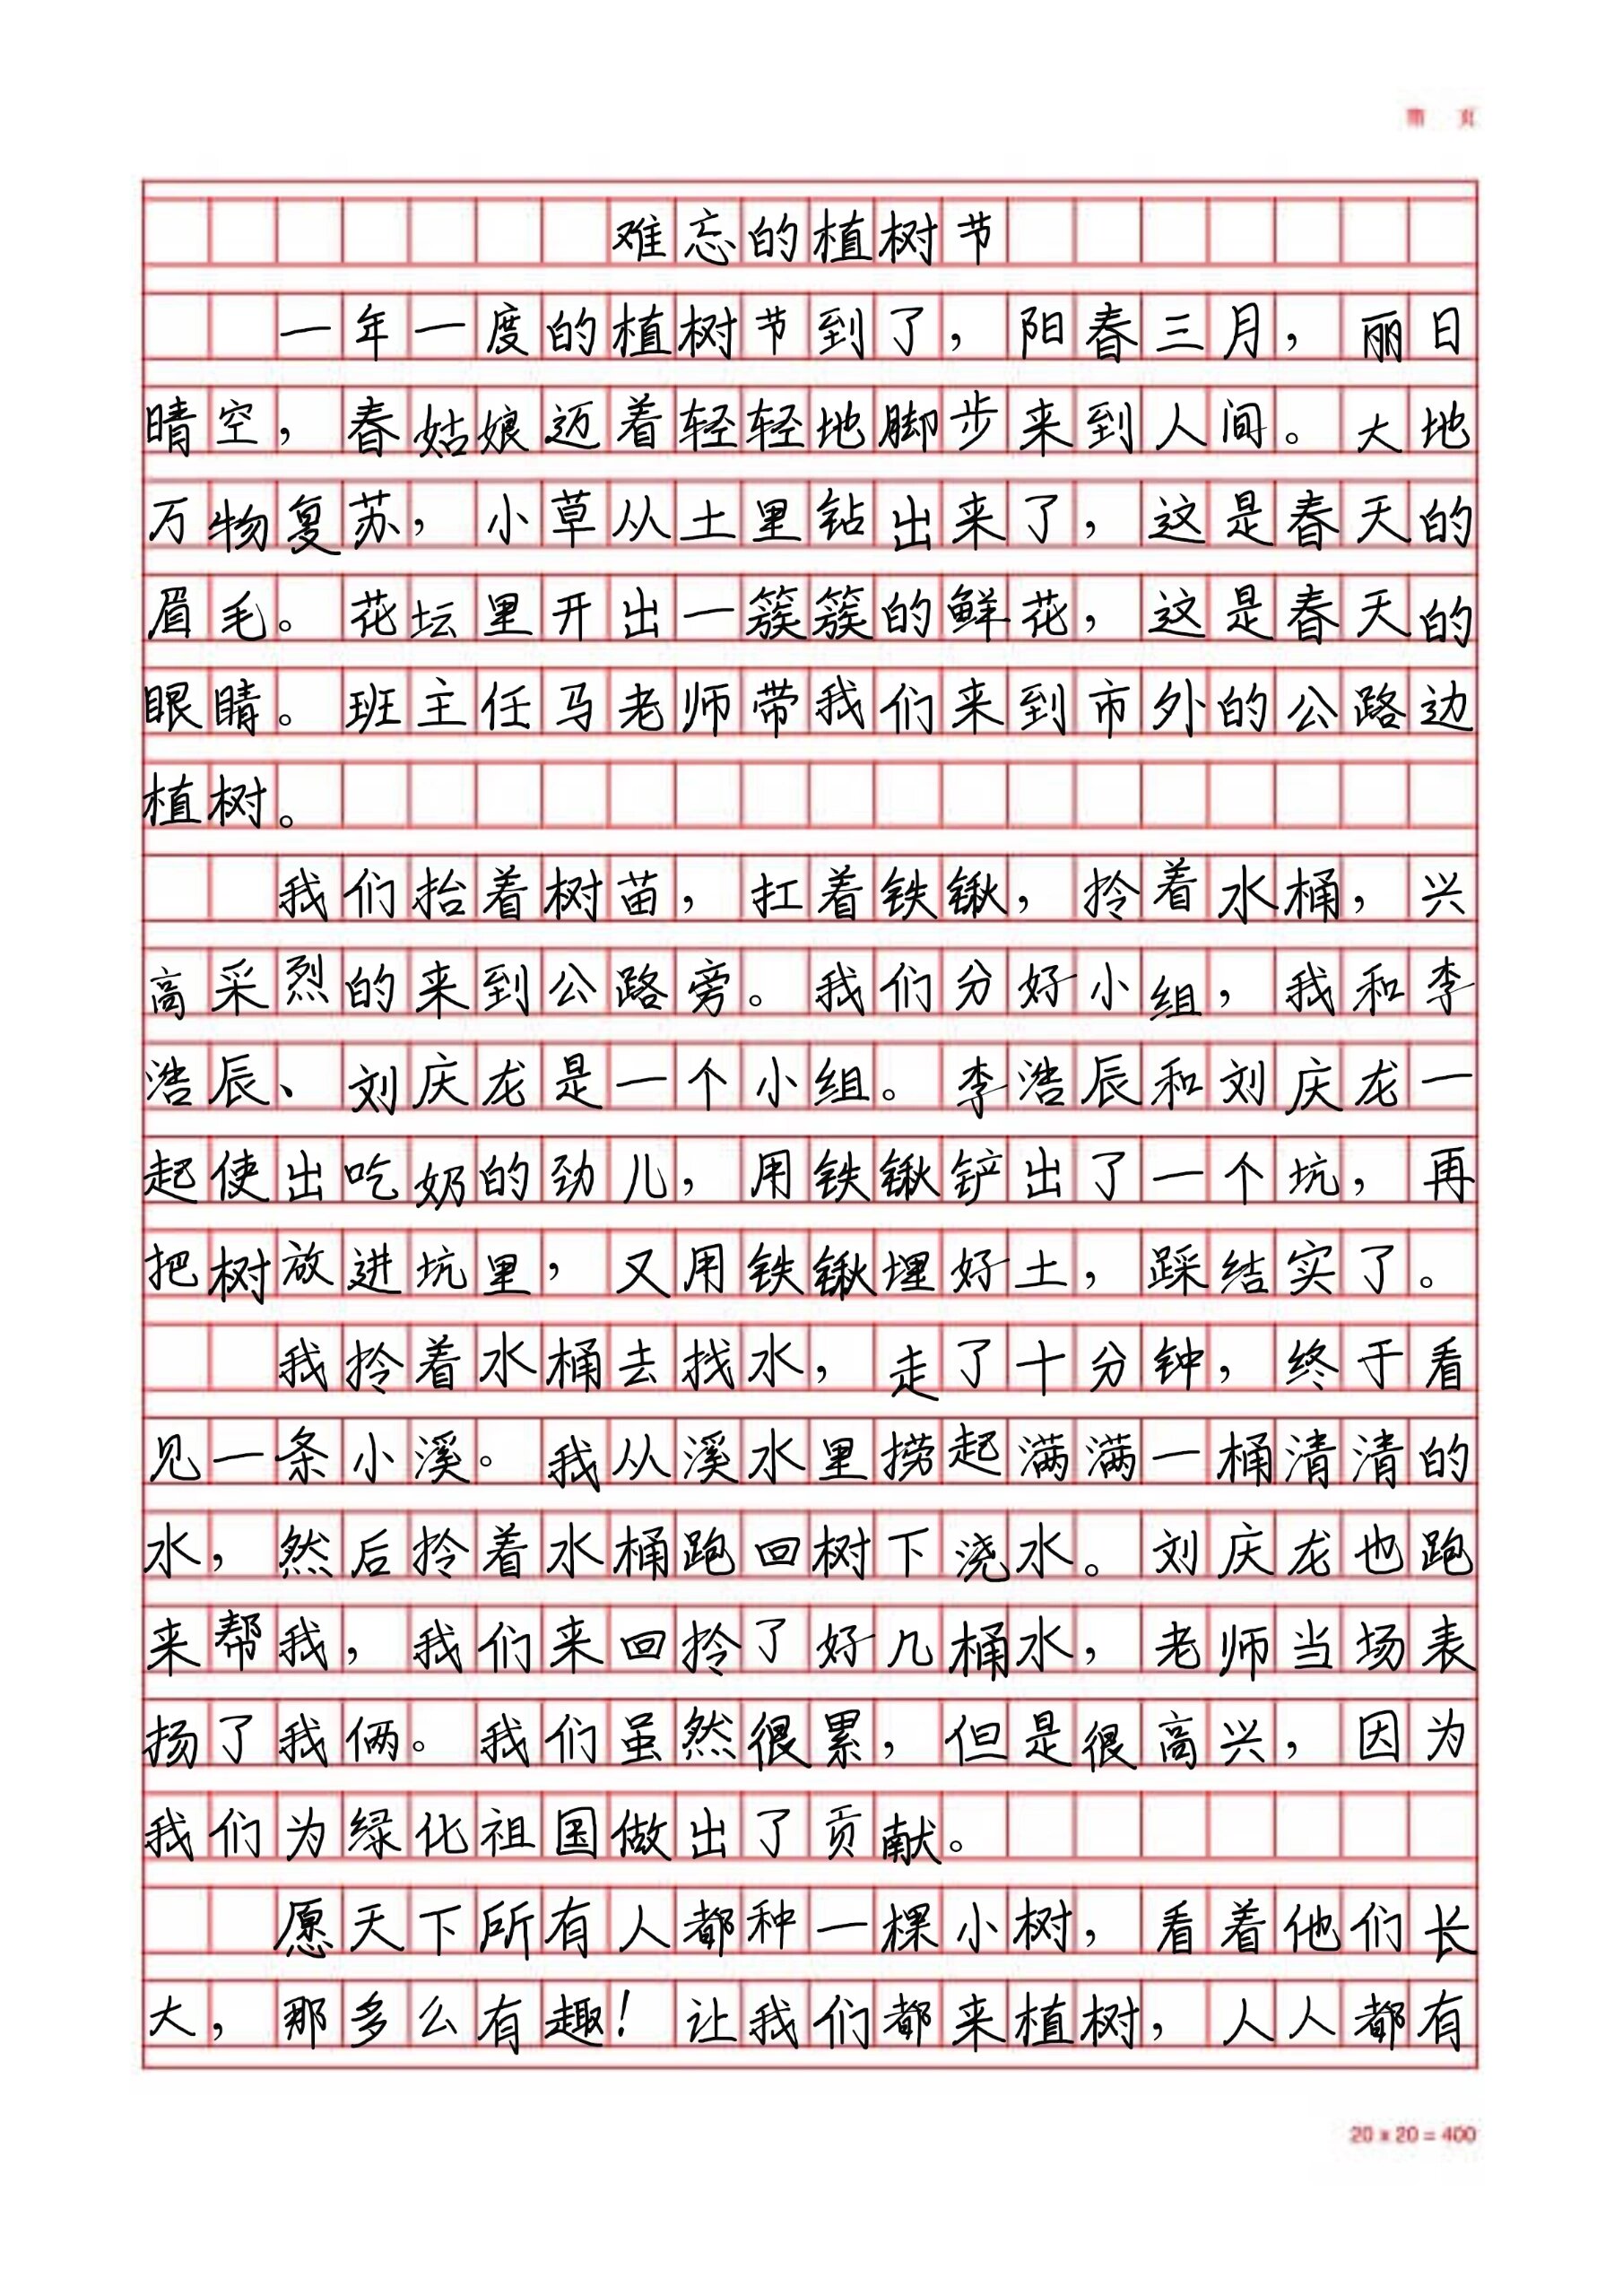 第 页
难忘的植树节
一年一度的植树节到了，阳春三月，丽日
晴空，春姑娘迈着轻轻地脚步来到人间。大地
万物复苏，小草从土里钻出来了，这是春天的
眉毛。花坛里开出一簇簇的鲜花，这是春天的
眼睛。班主任马老师带我们来到市外的公路边
植树。
我们抬着树苗，扛着铁锹，拎着水桶，兴
高采烈的来到公路旁。我们分好小组，我和李
浩辰、刘庆龙是一个小组。李浩辰和刘庆龙一
起使出吃奶的劲儿，用铁锹铲出了一个坑，再
把树放进坑里，又用铁锹埋好土，踩结实了。
我拎着水桶去找水，走了十分钟，终于看
见一条小溪。我从溪水里捞起满满一桶清清的
水，然后拎着水桶跑回树下浇水。刘庆龙也跑
来帮我，我们来回拎了好几桶水，老师当场表
扬了我俩。我们虽然很累，但是很高兴，因为
我们为绿化祖国做出了贡献。
愿天下所有人都种一棵小树，看着他们长
大，那多么有趣！让我们都来植树，人人都有
20 x 20 = 400